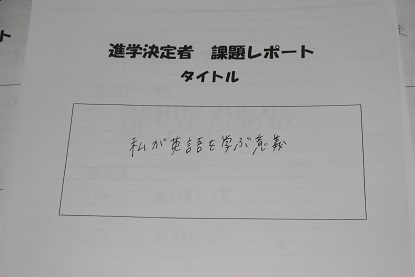 進学決定者 課題レポート
タイトル
私が英語を学ぶ意義